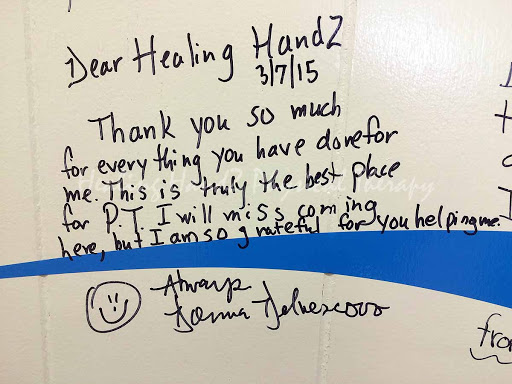 Dear Healing HandZ
3/7/15
Thank you so much
for every thing you have done for
me. This is truly the best place
for P.T. I will miss coming
here, but I am so grateful for you helping me.
Always
Donna
from